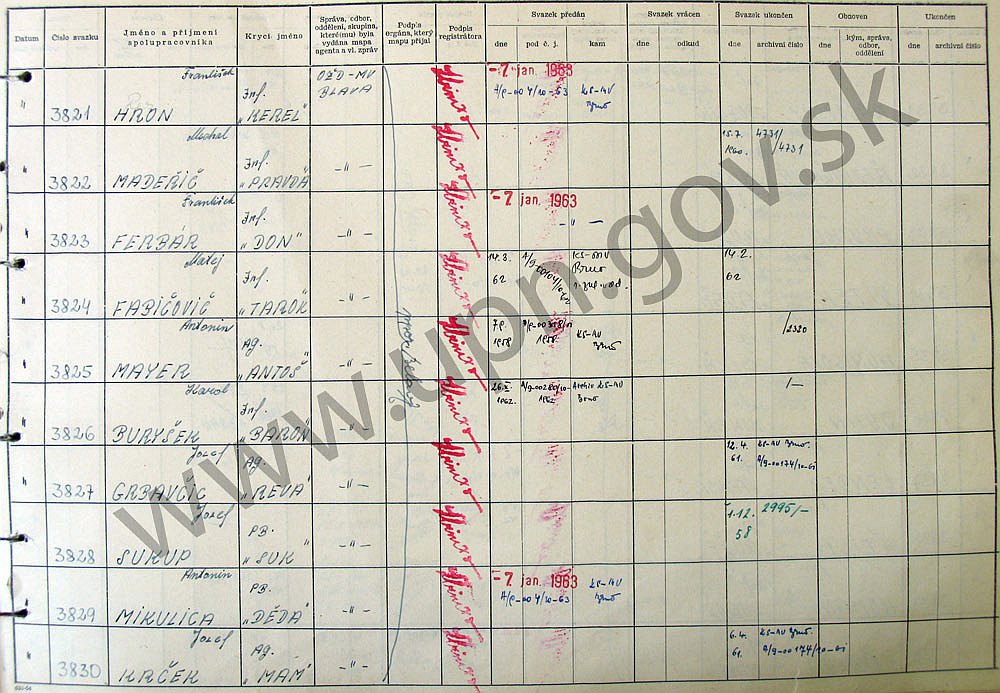 Datum
Číslo svazku
Jméno a příjmení spolupracovníka
Krycí jméno
Správa, odbor, oddělení, skupina, které(mu) byla vydána mapa agenta a vl. zpráv
Podpis orgána, který mapu přijal
Podpis registrátora
Svazek předán
dne
pod č. j.
kam
Svazek vrácen
dne
odkud
Svazek ukončen
dne
archivní číslo
Obnoven
dne
kým, správa, odbor, oddělení
Ukončen
dne
archivní číslo
" 3821 František HRON Inf. "KEREL" OŽD-MV BLAVA -7. jan. 1963 A/p-004/10-63 KS-MV Brno
" 3822 Michal MADEŘIČ Inf. "PRAVDA" -"- 15.7. 1960. 4731/4731
" 3823 František FERBÁR Inf. "DON" -"- -7. jan. 1963 -"-
" 3824 Matej FABIČOVIČ Inf. "TAROK" -"- 14.2. 62 KS-MV Brno 14.2. 62
" 3825 Antonin MAYER Ag. "ANTOŠ" -"- 1958 KS-MV Brno /2320
" 3826 Karol BURYŠEK Inf. "BARON" -"- 1962. Archiv KS-MV Brno /—
" 3827 Jozef GRBAVČIC Ag. "REVA" -"- 12.4. 61. KS-MV Brno A/9-00174/10-61
" 3828 Jozef SUKUP PB. "SUK" -"- 1.12. 58 2995/-
" 3829 Antonin MIKULICA PB. "DĚDA" -"- -7. jan. 1963 A/p-004/10-63 KS-MV Brno
" 3830 Jozef KRČEK Ag. "MAM" -"- 6.4. 61. KS-MV Brno. A/9-00174/10-61
www.upn.gov.sk